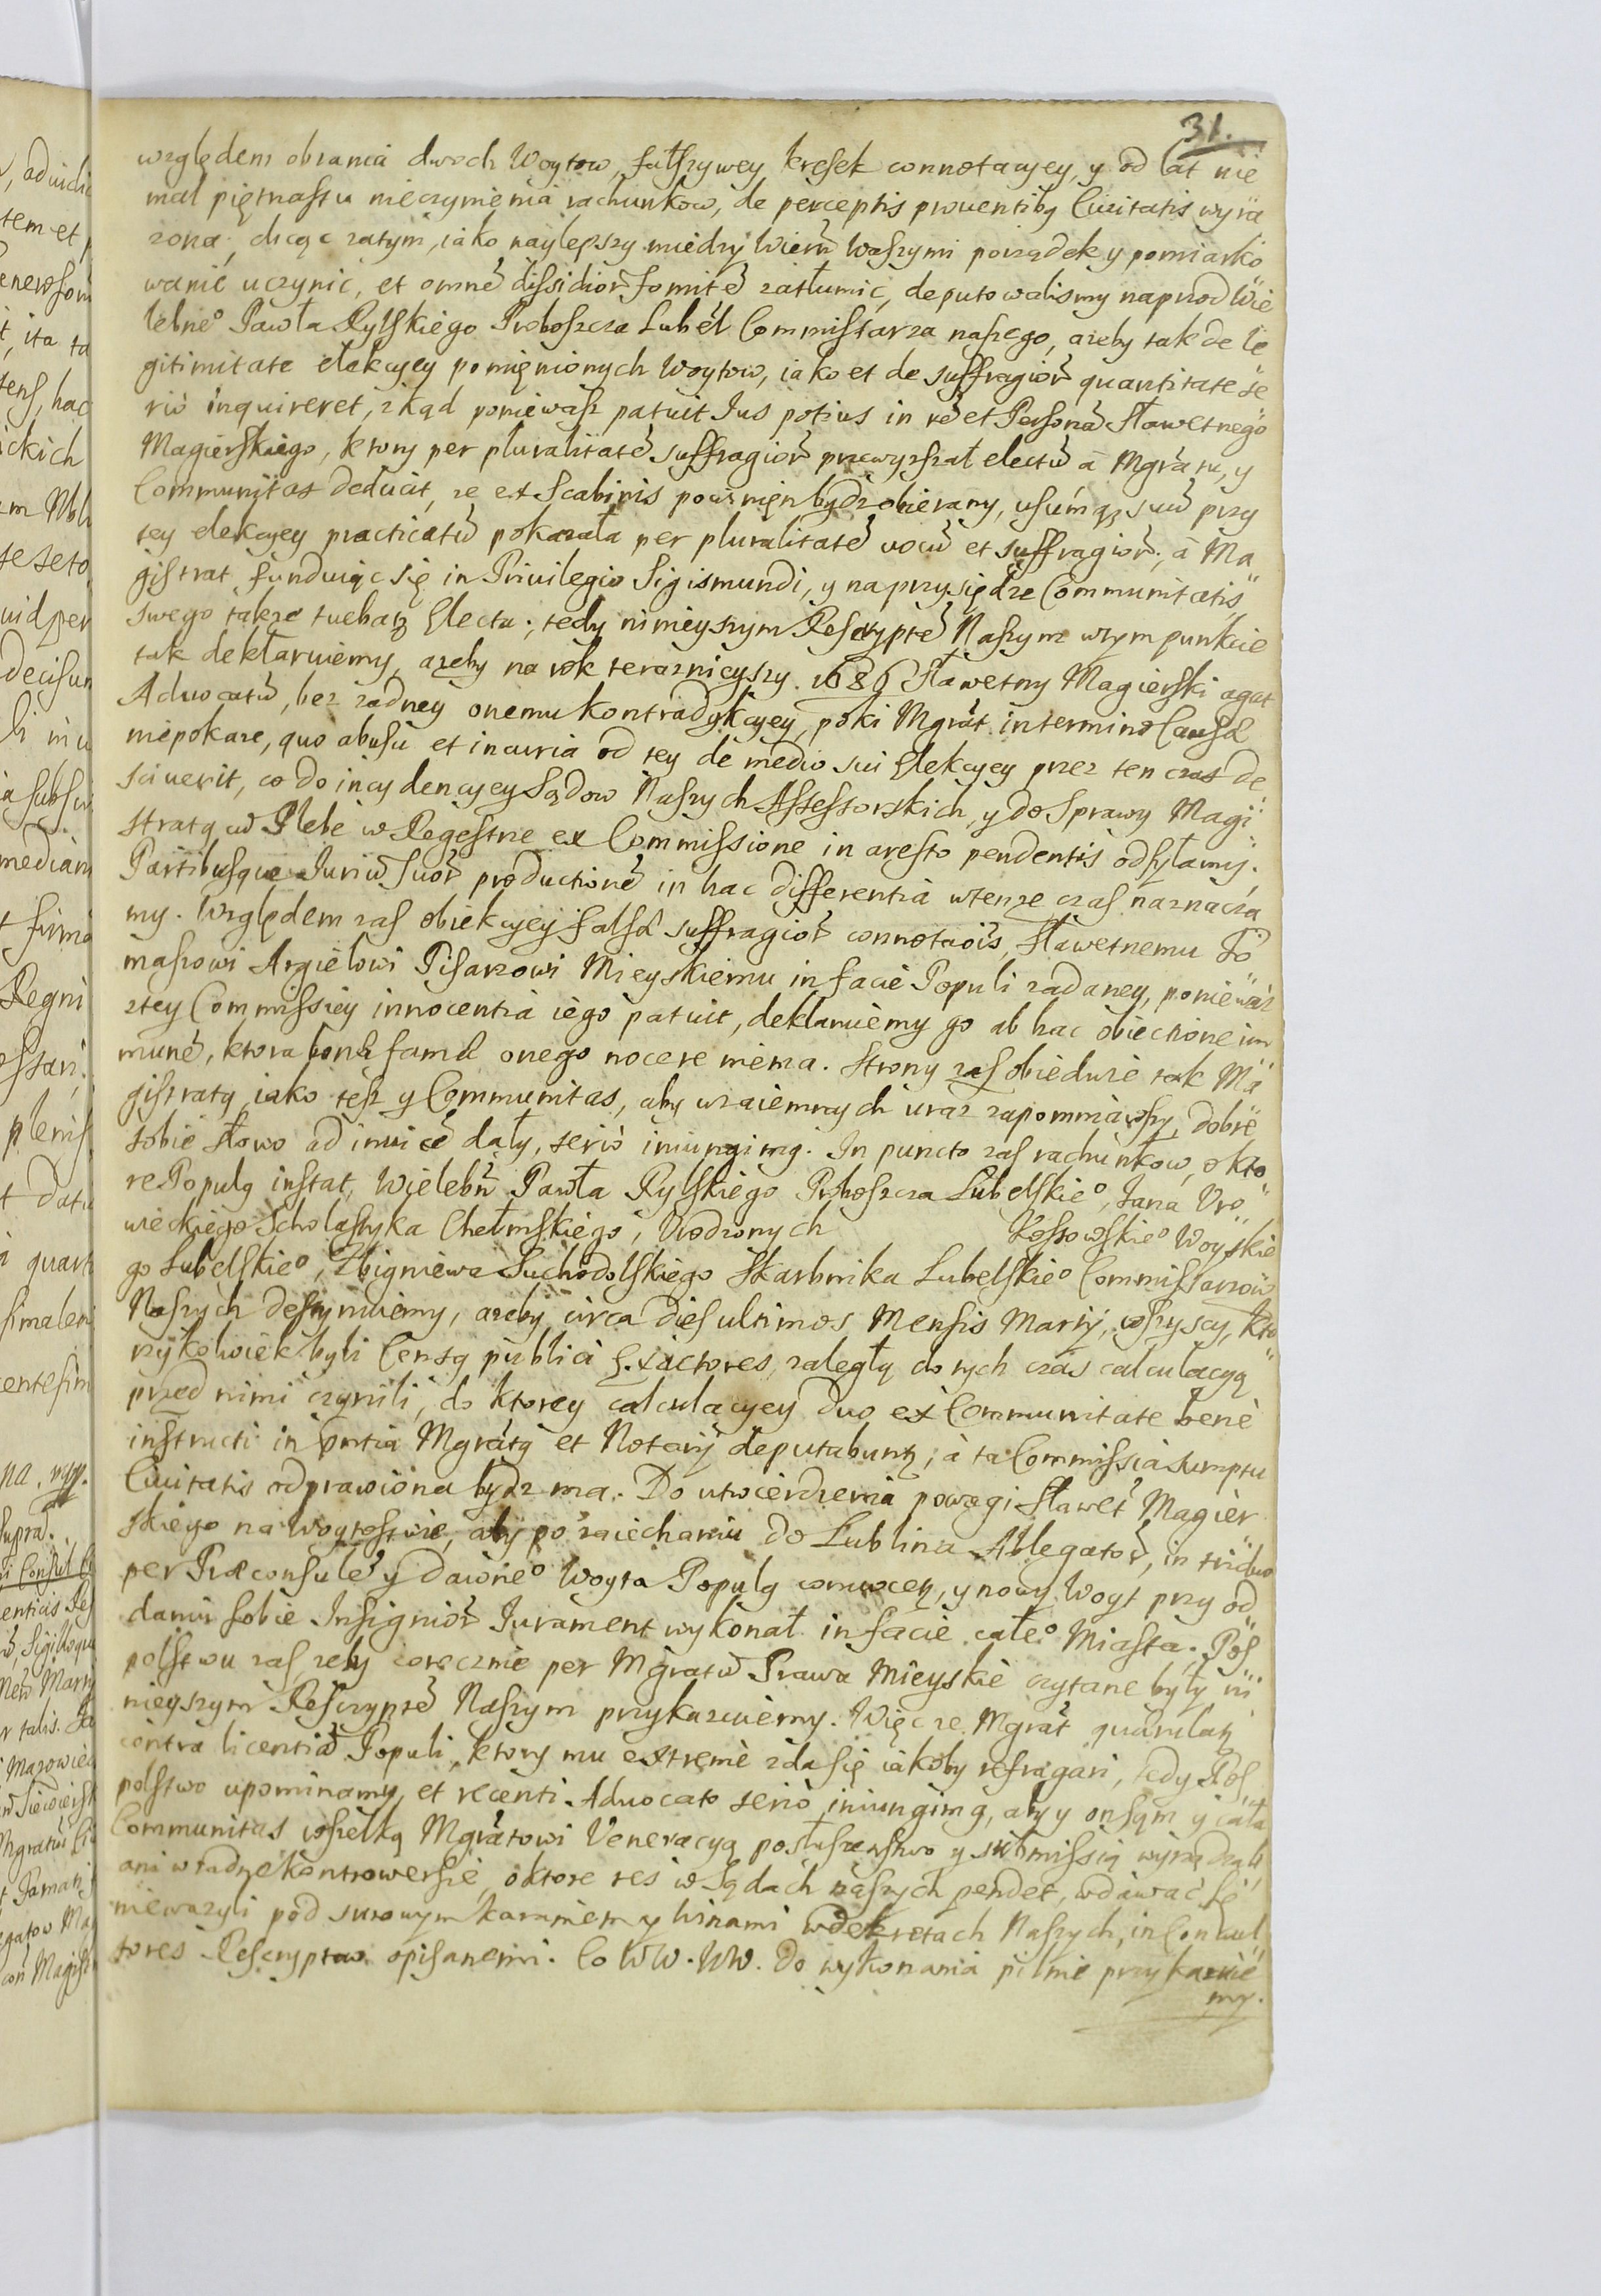 31.
względem obrania dwoch Woytow, fałszywey kresek connotacyey, y od lat nie
mal piętnastu nieczynienia rachunkow, de perceptis prouentibg Ciuitatis wyra
zona, chcąc zatym, iako naylepszy miedzy Wiern̄ Waszymi porządek y pomiarko
wanie uczynic, et omnē dissidior̄ fomitē zatłumic, deputowalismy naprzod Wie
lebneº Pawła Rylskiego Proboszcza Lubēl Commissarza naszego, azeby tak de le
gitimitate elekcyey pomięnionych Woytow, iako et de suffragior̄ quantitate se
riò inquireret, zkąd poniewasz patuit Ius potius in rē et Personā Sławetnego
Magierskiego, ktory per pluralitatē suffragior̄ przewyzszał electū à Mgrātu, y
Communitas deducit, ze ex Scabinis powinięn bydz obierany, usum qz suū przy
tey elekcyey practicatū pokazała per pluralitatē uocū et suffragior̄; à Ma
gistrat funduiąc się in Priuilegio Sigismundi, y na przysiędze Communitatis
swego takze tuebatz Electu; tedy ninieyszym Reskryptē Naszym w tym punkcie
tak deklaruiemy, azeby na rok teraznieyszy 1686 Sławetny Magierski agat
Aduocatū, bez zadney onemu kontradykcyey, poki Mgrāt in termino Causæ
niepokaze, quo abusu et incuria od tey de medio sui Elekcyey przez ten czas de
sciuerit, co do incydencyey Sądow Naszych Assessorskich, y do Sprawy Magi
stratg cū Plebe w Regestrze ex Commissione in aresto pendentis odsyłamy.
Partibusque Iuriū suor̄ productionē in hac differentia wtenze czas naznacza
my. Względem zas obiekcyey falsæ suffragior̄ connotaōis, Sławetnemu To
maszowi Argielowi Pisarzowi Mieyskiemu in facie Populi zadaney, poniewaz
z tey Commissiey innocentia iego patuit, deklaruiemy go ab hac obiectione im
munē, ktora bonæ famæ onego nocere niema. Strony zas obiedwie tak Ma
gistratg iako tesz y Communitas, aby wzaiemnych uraz zapomniawszy, dobre
sobie słowo ad inuicē dały, seriò iniungimg. In puncto zas rachunkow, o kto
re Populg instat, Wielebn̄ Pawła Rylskiego Proboszcza Lubelskieº, Jana Uro
wieckiego Scholastyka Chełmskiego, Urodzonych Kossowskieº Woyskie
go Lubelskieº, Zbigniewa Suchodolskiego Skarbnika Lubelskieº Commissarzow
Naszych destynuiemy, azeby circa dies ultimos Mensis Martij, wszyscy, kto
rzykolwiek byli Censg publici Exactores, zaległą do tych czas calculacyą
przed nimi czynili, do ktorey calculacyey duo ex Communitate bene
instructi in pntia Mgrātg et Notarij deputabuntz, à ta Commissia sumptu
Ciuitatis odprawiona bydz ma. Do utwierdzenia powagi Sławet̄ Magier
skiego na Woytostwie, aby po zaiechaniu do Lublina Ablegator̄, in triduo
per Præconsulē y dawneº Woyta Populg conuocetz, y nowy Woyt przy od
daniu sobie Insignior̄ Jurament wykonał in facie całeº Miasta. Pos
polstwu zas zeby corocznie per Mgratū Prawa Mieyskie czytane były ni
nieyszym Reskryptē Naszym przykazuiemy. Więc ze Mgrāt quærulatz
contra licentiā Populi, ktory mu extremè zda się iakoby refragari, tedy Pos
polstwo upominamy, et recenti Aduocato seriò iniungimg, aby y on sąm y cała
Communitas wszelką Mgrātowi Veneracyą posłuszenstwo y submissią wyrządzali
ani w zadne kontrowersie, o ktore res w Sądach naszych pendet, wdawac se
niewazyli pod surowym karaniem y winami w dekretach Naszych, in Contuul
tores Rescryptow opisanemi. Co WW. WW. do wykonania pilnie przykazuie
my.